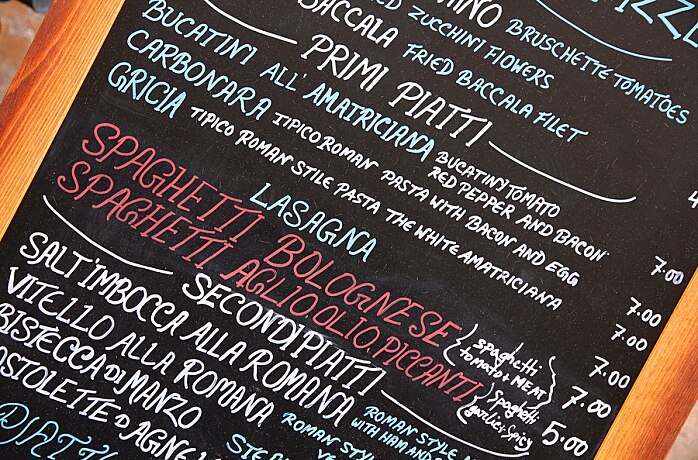 BACCALA FRIED ZUCCHINI FLOWERS BRUSCHETTE TOMATOES
FRIED BACCALA FILET
PRIMI PIATTI
BUCATINI ALL' AMATRICIANA BUCATINI TOMATO
RED PEPPER AND BACON 7.00
CARBONARA TIPICO ROMAN PASTA WITH BACON AND EGG 7.00
GRICIA TIPICO ROMAN STILE PASTA THE WHITE AMATRICIANA 7.00
LASAGNA 7.00
SPAGHETTI BOLOGNESE (spaghetti
tomato & MEAT) 7.00
SPAGHETTI AGLIO OLIO, PICCANTI (Spaghetti
garlic & spicy 5.00
SECONDI PIATTI
SALT'IMBOCCA ALLA ROMANA ROMAN STYLE
WITH HAM AND
VITELLO ALLA ROMANA ROMAN STYLE
BISTECCA DI MANZO